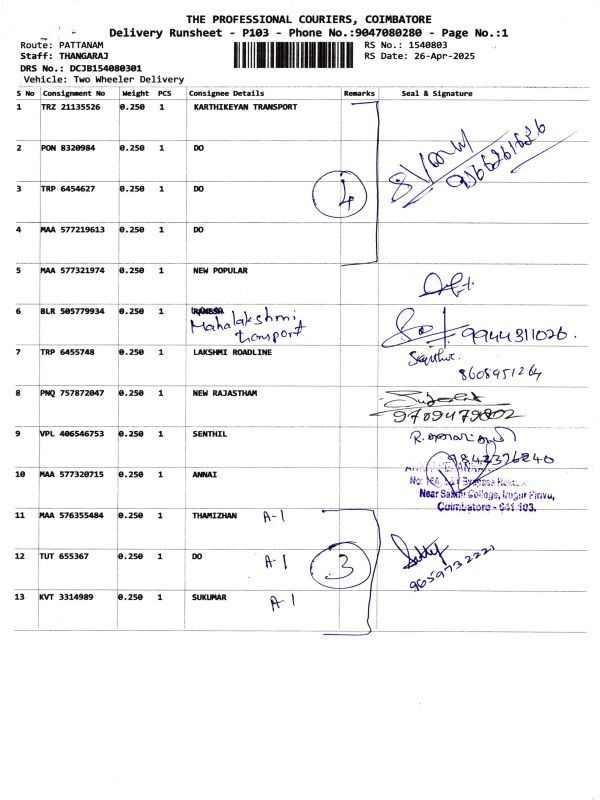 THE PROFESSIONAL COURIERS, COIMBATORE
Delivery Runsheet - P103 - Phone No.:9047080280 - Page No.:1
Route: PATTANAM RS No.: 1540803
Staff: THANGARAJ RS Date: 26-Apr-2025
DRS No.: DCJB154080301
Vehicle: Two Wheeler Delivery
S No Consignment No Weight PCS Consignee Details Remarks Seal & Signature
1 TRZ 21135526 0.250 1 KARTHIKEYAN TRANSPORT
2 PON 8320984 0.250 1 DO
9566261626
3 TRP 6454627 0.250 1 DO
4
4 MAA 577219613 0.250 1 DO
5 MAA 577321974 0.250 1 NEW POPULAR
6 BLR 505779934 0.250 1
Mahalakshmi
transport
9944311026.
7 TRP 6455748 0.250 1 LAKSHMI ROADLINE
8608951264
8 PNQ 757872047 0.250 1 NEW RAJASTHAM
9709479802
9 VPL 406546753 0.250 1 SENTHIL
9842326240
10 MAA 577320715 0.250 1 ANNAI
Near Sakthi College, Irugur Pirivu,
Coimbatore - 641 103.
11 MAA 576355484 0.250 1 THAMIZHAN A-1
12 TUT 655367 0.250 1 DO A-1 3
9659732221
13 KVT 3314989 0.250 1 SUKUMAR A-1